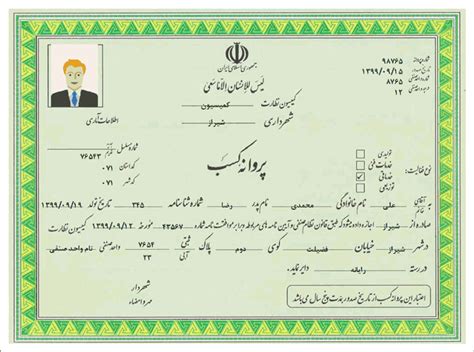 جمهوری اسلامی ایران
لیس للانسان الا ماسعی
کمیسیون نظارت کمیسیون
شهرداری شیراز
شماره پروانه ۹۸۷۶۵
تاریخ صدور ۱۳۹۹/۰۹/۱۵
۸۷۶۵
۱۲
اطلاعات آماری
شماره مسلسل ۷۶۵۴۳
کد استان ۰۷۱
کد شهر ۰۷۱
پروانه کسب
نوع فعالیت:
تولیدی
خدمات فنی
خدماتی
توزیعی
آقای خانم علی نام خانوادگی محمدی نام پدر رضا شماره شناسنامه ۳۴۵ تاریخ تولد ۱۳۹۹/۰۹/۱۹
صادره از شیراز اجازه داده میشود که طبق قانون نظام صنفی و آیین نامه های مربوطه و برابر موافقت نامه شماره ۴۵۶۷ مورخه ۱۳۹۹/۰۹/۱۲
در شهر شیراز خیابان فضیلت کوی دوم پلاک ۲۳ ثبتی ۷۶۵۴ واحد صنفی نام واحد صنفی
در رسته رایانه دایر نماید.
شهردار
مهر و امضاء
اعتبار این پروانه کسب از تاریخ صدور بمدت پنج سال می باشد